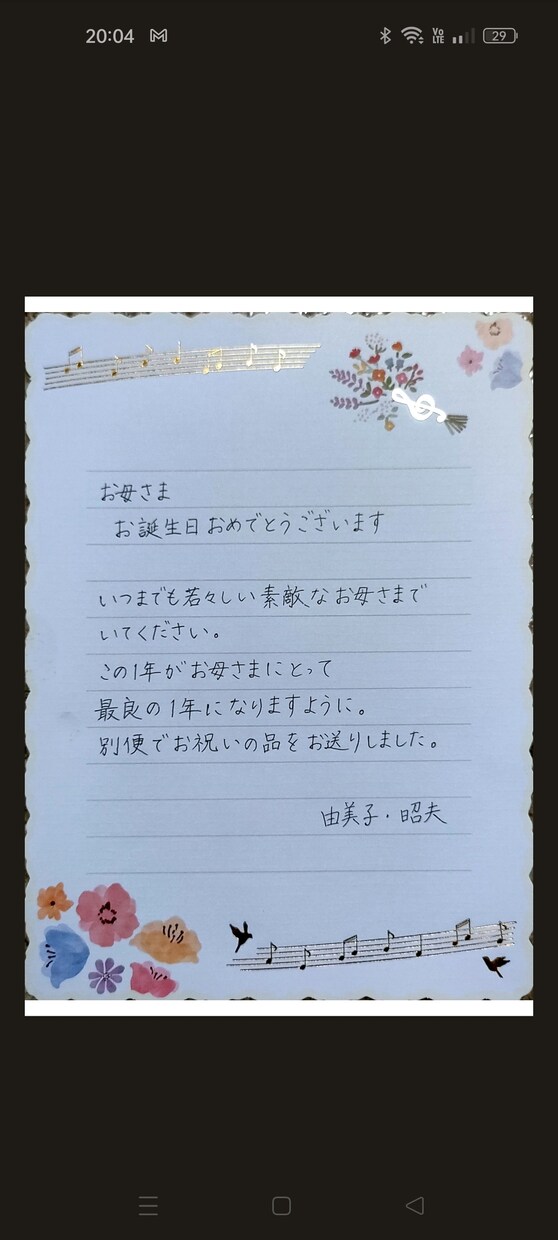 20:04
Vo
LTE
29
お母さま
お誕生日おめでとうございます
いつまでも若々しい素敵なお母さまで
いてください。
この1年がお母さまにとって
最良の1年になりますように。
別便でお祝いの品をお送りしました。
由美子・昭夫